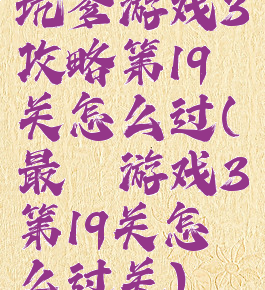 坑爹游戏3
攻略第19
关怎么过(
最 游戏3
第19关怎
么过关)